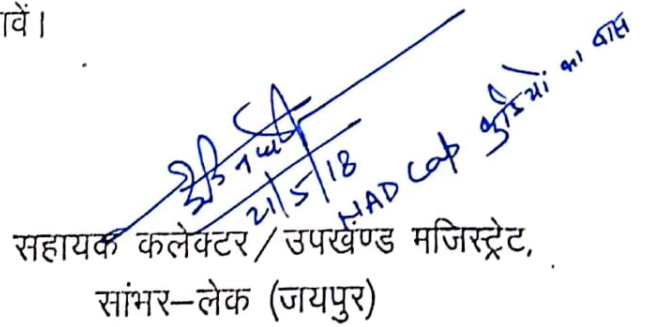 ावें।
21/5/18
HAD Cap कुड़ियों का वास
सहायक कलेक्टर / उपखण्ड मजिस्ट्रेट,
सांभर–लेक (जयपुर)